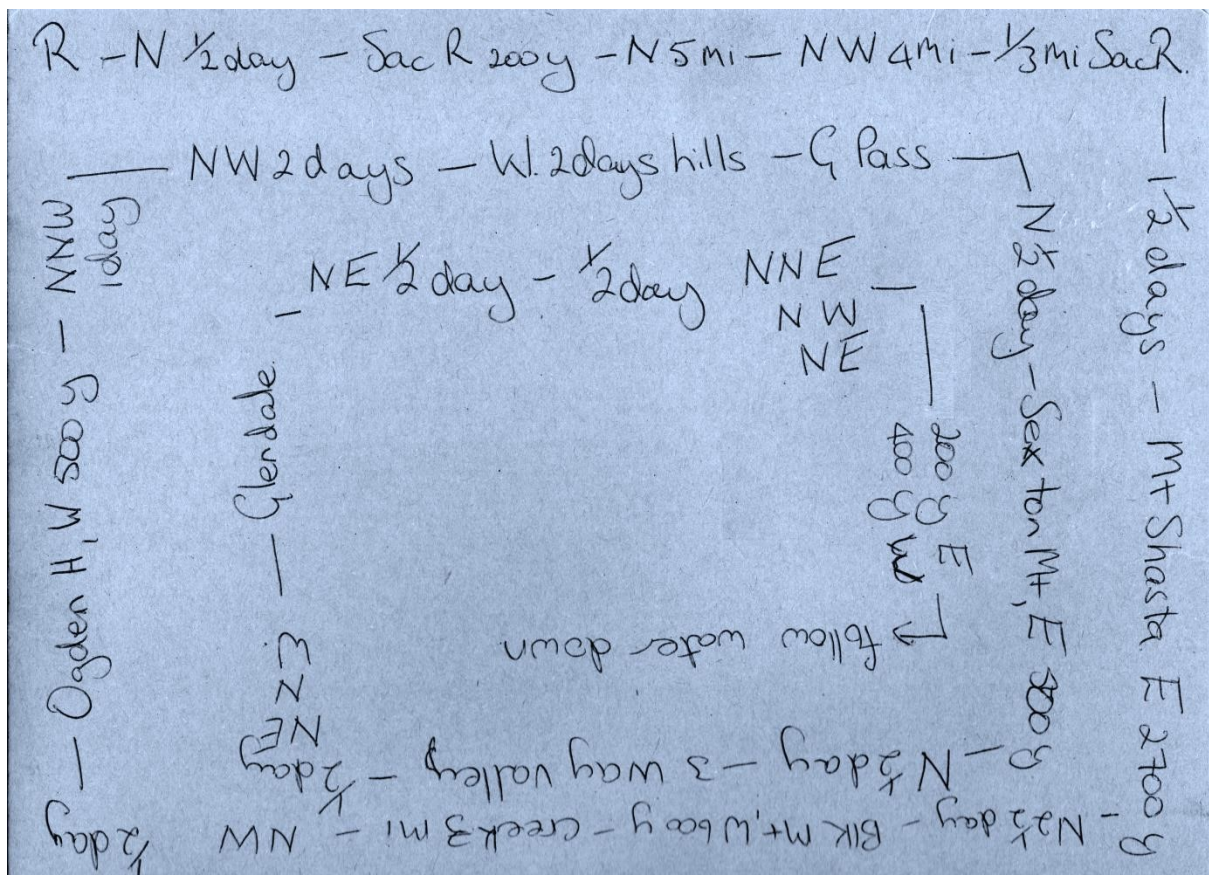 R – N ½ day – Sac R 200y – N 5 mi – NW 4 mi – ⅓ mi Sac R.
– 1½ days – Mt Shasta E 2700 y
– N 2½ day – Blk Mt, W 600y – creek 3 mi – NW ½ day
– Ogden H, W 500 y – NNW
1 day
– NW 2 days – W. 2 days hills – G Pass –
N ½ day – Sexton Mt, E y
– N ½ day – 3 way valley – ½ day
NE
N
W.
– Glendale –
NE ½ day – ½ day NNE –
NW
NE
– 200 y E
400 y W
follow water down